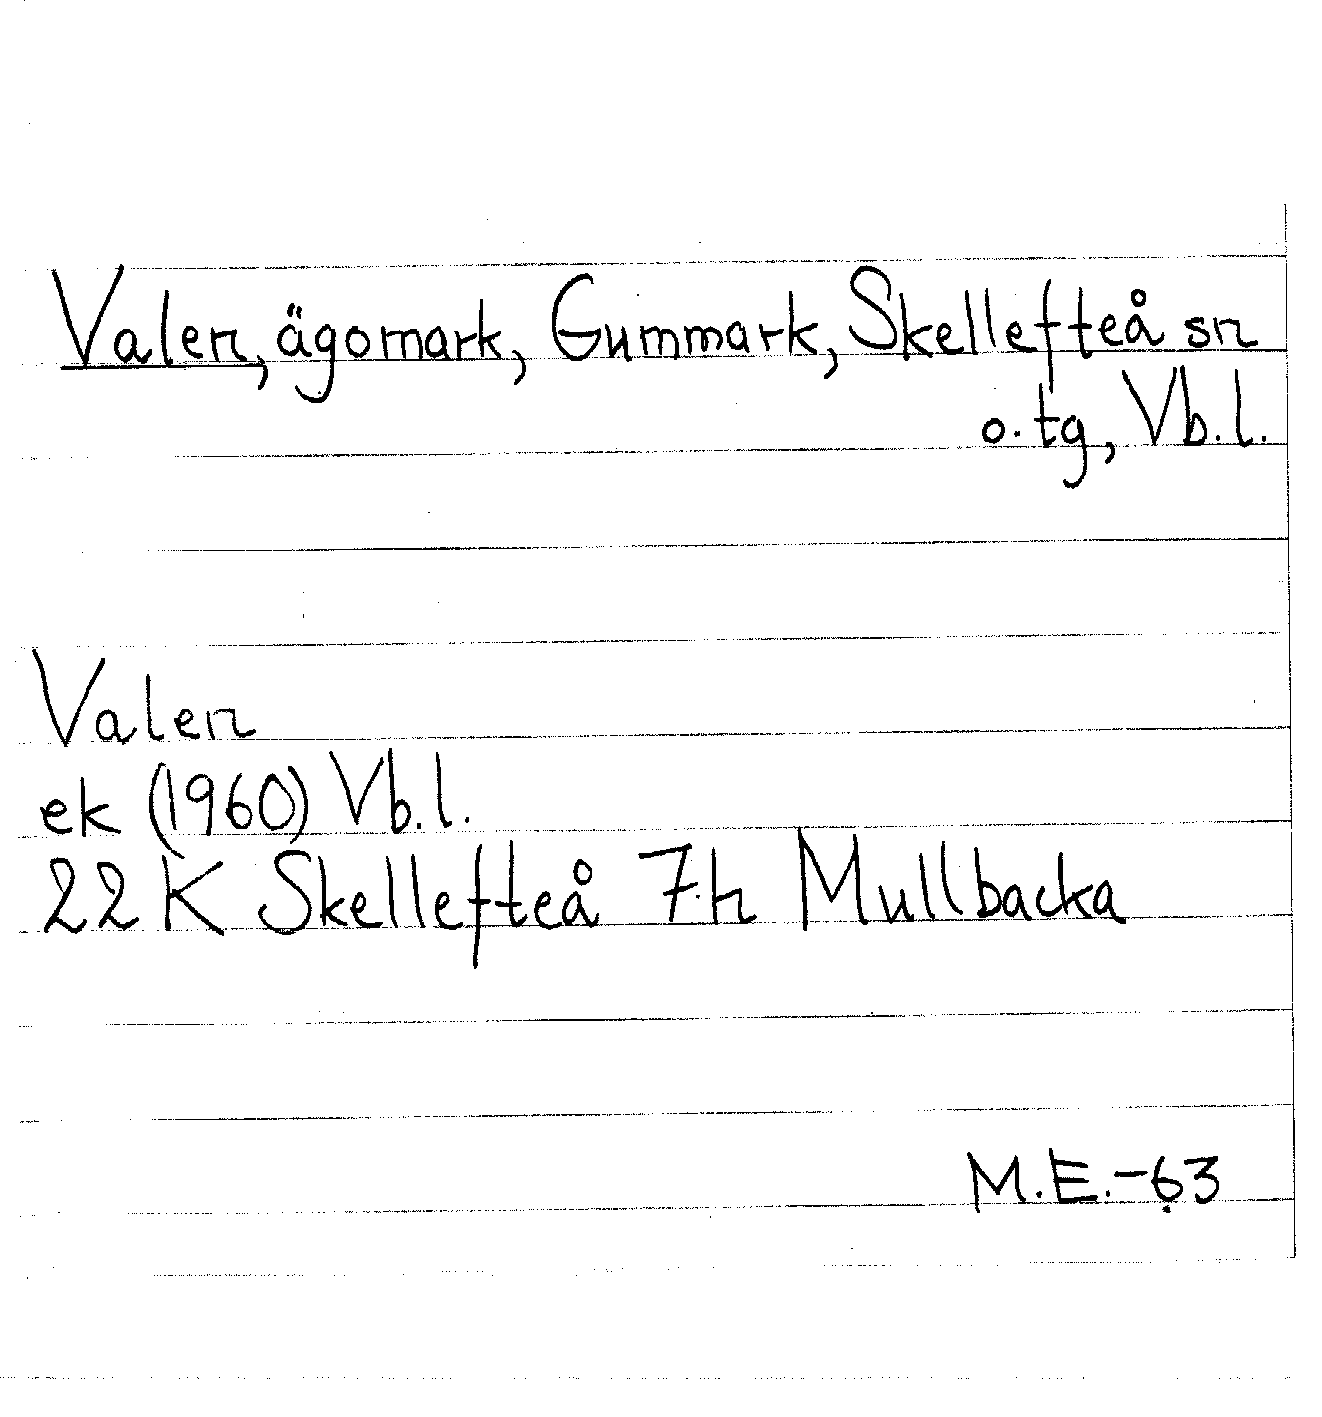 Valen, ägomark, Gummark, Skellefteå sn
o. tg, Vb.l.
Valen
ek (1960) Vb.l.
22 K Skellefteå 7h Mullbacka
M.E.-63